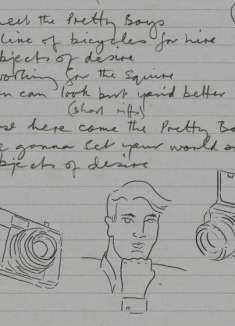 meet the Pretty Boys
line of bicycles for hire
bjects of desire
working for the Squire
can look but you'd better
(short riffs)
here come the Pretty Bo
gonna set your world o
bjects of desire